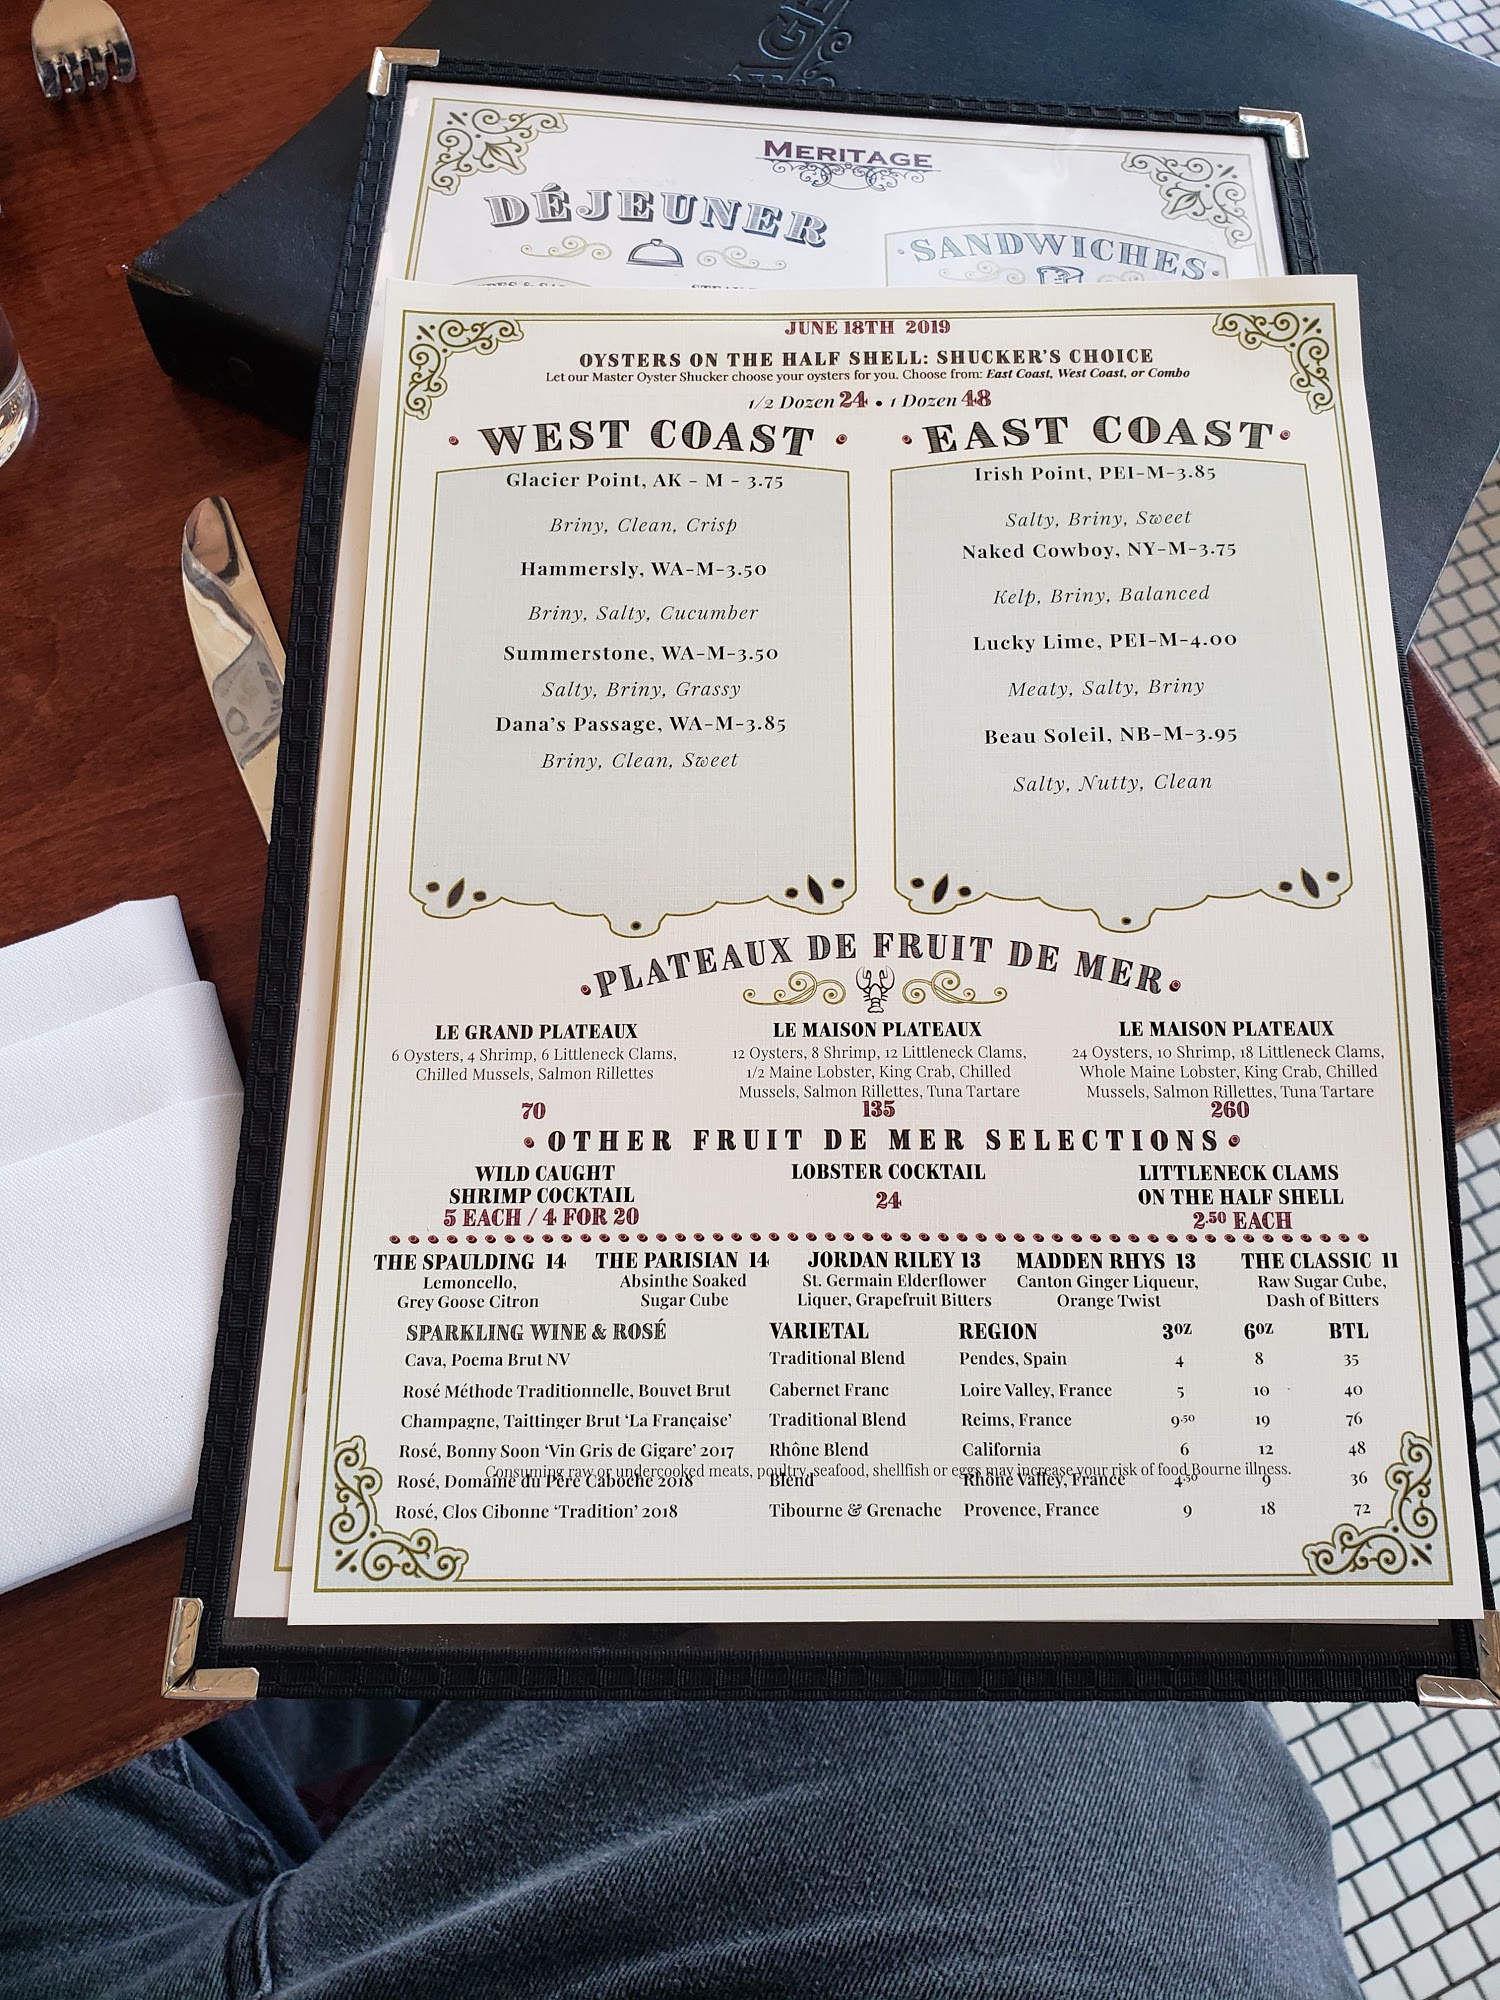 MERITAGE
DÉJEUNER
SANDWICHES
JUNE 18TH 2019
OYSTERS ON THE HALF SHELL: SHUCKER'S CHOICE
Let our Master Oyster Shucker choose your oysters for you. Choose from: East Coast, West Coast, or Combo
1/2 Dozen 24 • 1 Dozen 48
• WEST COAST •
Glacier Point, AK - M - 3.75
Briny, Clean, Crisp
Hammersly, WA-M-3.50
Briny, Salty, Cucumber
Summerstone, WA-M-3.50
Salty, Briny, Grassy
Dana's Passage, WA-M-3.85
Briny, Clean, Sweet
• EAST COAST •
Irish Point, PEI-M-3.85
Salty, Briny, Sweet
Naked Cowboy, NY-M-3.75
Kelp, Briny, Balanced
Lucky Lime, PEI-M-4.00
Meaty, Salty, Briny
Beau Soleil, NB-M-3.95
Salty, Nutty, Clean
• PLATEAUX DE FRUIT DE MER •
LE GRAND PLATEAUX
6 Oysters, 4 Shrimp, 6 Littleneck Clams,
Chilled Mussels, Salmon Rillettes
70
LE MAISON PLATEAUX
12 Oysters, 8 Shrimp, 12 Littleneck Clams,
1/2 Maine Lobster, King Crab, Chilled
Mussels, Salmon Rillettes, Tuna Tartare
135
LE MAISON PLATEAUX
24 Oysters, 10 Shrimp, 18 Littleneck Clams,
Whole Maine Lobster, King Crab, Chilled
Mussels, Salmon Rillettes, Tuna Tartare
260
• OTHER FRUIT DE MER SELECTIONS •
WILD CAUGHT
SHRIMP COCKTAIL
5 EACH / 4 FOR 20
LOBSTER COCKTAIL
24
LITTLENECK CLAMS
ON THE HALF SHELL
2.50 EACH
THE SPAULDING 14
Lemoncello,
Grey Goose Citron
THE PARISIAN 14
Absinthe Soaked
Sugar Cube
JORDAN RILEY 13
St. Germain Elderflower
Liquer, Grapefruit Bitters
MADDEN RHYS 13
Canton Ginger Liqueur,
Orange Twist
THE CLASSIC 11
Raw Sugar Cube,
Dash of Bitters
SPARKLING WINE & ROSÉ VARIETAL REGION 3OZ 6OZ BTL
Cava, Poema Brut NV Traditional Blend Pendes, Spain 4 8 35
Rosé Méthode Traditionnelle, Bouvet Brut Cabernet Franc Loire Valley, France 5 10 40
Champagne, Taittinger Brut 'La Française' Traditional Blend Reims, France 9.50 19 76
Rosé, Bonny Soon 'Vin Gris de Gigare' 2017 Rhône Blend California 6 12 48
Consuming raw or undercooked meats, poultry, seafood, shellfish or eggs may increase your risk of food Bourne illness.
Rosé, Domaine du Père Caboche 2018 Blend Rhône Valley, France 4.50 9 36
Rosé, Clos Cibonne 'Tradition' 2018 Tibourne & Grenache Provence, France 9 18 72